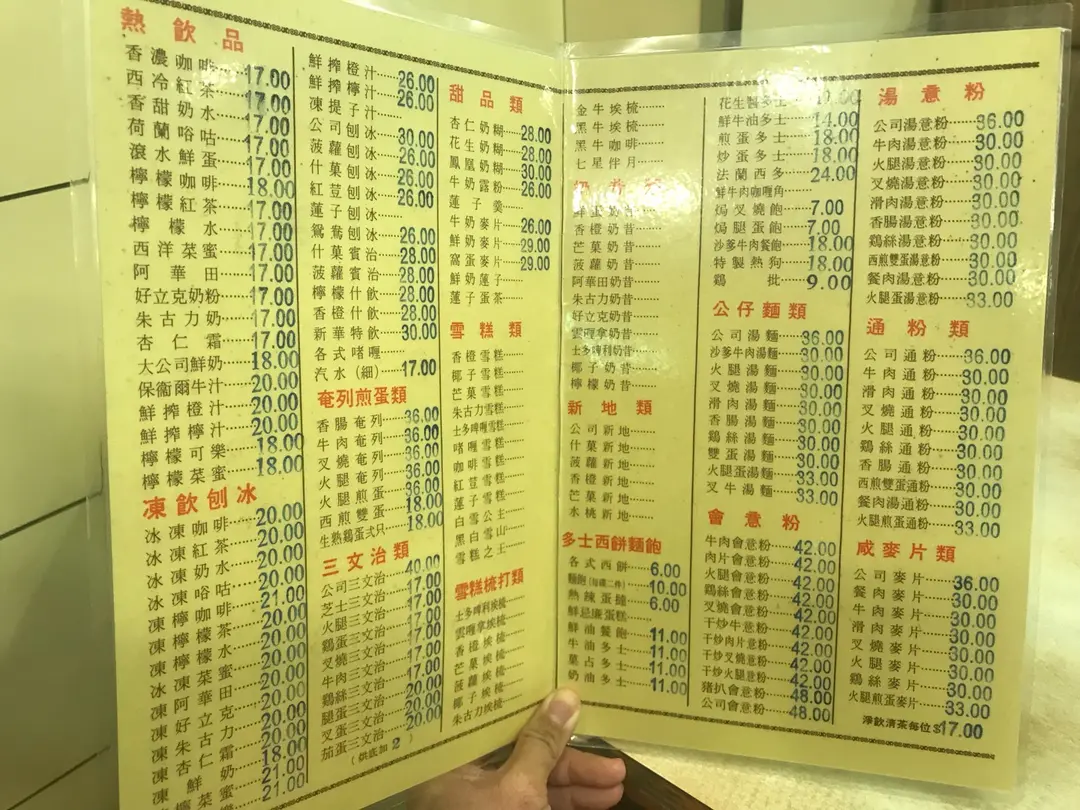 熱飲品
香濃咖啡 17.00
西冷紅茶 17.00
香甜奶水 17.00
荷蘭唂咕 17.00
滾水鮮蛋 17.00
檸檬咖啡 18.00
檸檬紅茶 17.00
檸檬水 17.00
西洋菜蜜 17.00
阿華田 17.00
好立克奶粉 17.00
朱古力奶 17.00
杏仁霜 17.00
大公司鮮奶 18.00
保衞爾牛汁 20.00
鮮搾橙汁 20.00
鮮搾檸汁 20.00
檸檬可樂 18.00
檸檬菜蜜 18.00
凍飲刨冰
冰凍咖啡 20.00
冰凍紅茶 20.00
冰凍奶水 20.00
冰凍唂咕 20.00
凍檸咖啡 21.00
凍檸檬茶 20.00
凍檸檬水 20.00
冰凍菜蜜 20.00
凍阿華田 20.00
凍好立克 20.00
凍朱古力 20.00
凍杏仁霜 20.00
凍鮮奶 18.00
檸菜蜜 21.00
檸樂 21.00
鮮搾橙汁 26.00
鮮搾檸汁 26.00
凍提子汁
公司刨冰 30.00
菠蘿刨冰 26.00
什菓刨冰 26.00
紅荳刨冰 26.00
蓮子刨冰
鴛鴦刨冰 26.00
什菓賓治 28.00
菠蘿賓治 28.00
檸檬什飲 28.00
香橙什飲 28.00
新華特飲 30.00
各式啫喱
汽水(細) 17.00
奄列煎蛋類
香腸奄列 36.00
牛肉奄列 36.00
叉燒奄列 36.00
火腿奄列 36.00
火腿煎蛋 36.00
西煎雙蛋 18.00
生熟鷄蛋弍只 18.00
三文治類
公司三文治 40.00
芝士三文治 17.00
火腿三文治 17.00
鷄蛋三文治 17.00
叉燒三文治 17.00
牛肉三文治 17.00
鷄絲三文治 17.00
腿蛋三文治 20.00
叉蛋三文治 20.00
茄蛋三文治 20.00
(烘底加2)
甜品類
杏仁奶糊 28.00
花生奶糊 28.00
鳳凰奶糊 30.00
牛奶露粉 26.00
蓮子羹
牛奶麥片 26.00
鮮奶麥片 29.00
窩蛋麥片 29.00
鮮奶蓮子
蓮子蛋茶
雪糕類
香橙雪糕
椰子雪糕
芒菓雪糕
朱古力雪糕
士多啤喱雪糕
啫喱雪糕
咖啡雪糕
紅荳雪糕
蓮子雪糕
白雪公主
黑白雪山
雪糕之王
雪糕梳打類
士多啤利埃梳
雲喱拿埃梳
香橙埃梳
芒菓埃梳
菠蘿埃梳
椰子埃梳
朱古力埃梳
金牛埃梳
黑牛埃梳
黑牛咖啡
七星伴月
鮮蛋奶昔
香橙奶昔
芒菓奶昔
菠蘿奶昔
阿華田奶昔
朱古力奶昔
好立克奶昔
雲喱拿奶昔
士多啤利奶昔
椰子奶昔
檸檬奶昔
新地類
公司新地
什菓新地
菠蘿新地
香橙新地
芒菓新地
水桃新地
多士西餅麵飽
各式西餅 6.00
麵飽(每碟二件) 10.00
熱辣蛋撻 6.00
鮮忌廉蛋糕
鮮油餐飽 11.00
牛油多士 11.00
菓占多士 11.00
奶油多士 11.00
花生醬多士
鮮牛油多士 14.00
煎蛋多士 18.00
炒蛋多士 18.00
法蘭西多 24.00
鮮牛肉咖喱角
焗叉燒飽 7.00
焗腿蛋飽 7.00
沙爹牛肉餐飽 18.00
特製熱狗 18.00
鷄批 9.00
公仔麵類
公司湯麵 36.00
沙爹牛肉湯麵 30.00
火腿湯麵 30.00
叉燒湯麵 30.00
滑肉湯麵 30.00
香腸湯麵 30.00
鷄絲湯麵 30.00
雙蛋湯麵 30.00
火腿蛋湯麵 33.00
叉牛湯麵 33.00
會意粉
牛肉會意粉 42.00
肉片會意粉 42.00
火腿會意粉 42.00
鷄絲會意粉 42.00
叉燒會意粉 42.00
干炒牛意粉 42.00
干炒肉片意粉 42.00
干炒叉燒意粉 42.00
干炒火腿意粉 42.00
豬扒會意粉 48.00
公司會意粉 48.00
湯意粉
公司湯意粉 36.00
牛肉湯意粉 30.00
火腿湯意粉 30.00
叉燒湯意粉 30.00
滑肉湯意粉 30.00
香腸湯意粉 30.00
鷄絲湯意粉 30.00
西煎雙蛋湯意粉 30.00
餐肉湯意粉 30.00
火腿蛋湯意粉 33.00
通粉類
公司通粉 36.00
牛肉通粉 30.00
滑肉通粉 30.00
叉燒通粉 30.00
火腿通粉 30.00
鷄絲通粉 30.00
香腸通粉 30.00
西煎雙蛋通粉 30.00
餐肉湯通粉 30.00
火腿煎蛋通粉 33.00
咸麥片類
公司麥片 36.00
餐肉麥片 30.00
牛肉麥片 30.00
滑肉麥片 30.00
叉燒麥片 30.00
火腿麥片 30.00
鷄絲麥片 30.00
火腿煎蛋麥片 33.00
淨飲清茶每位$17.00